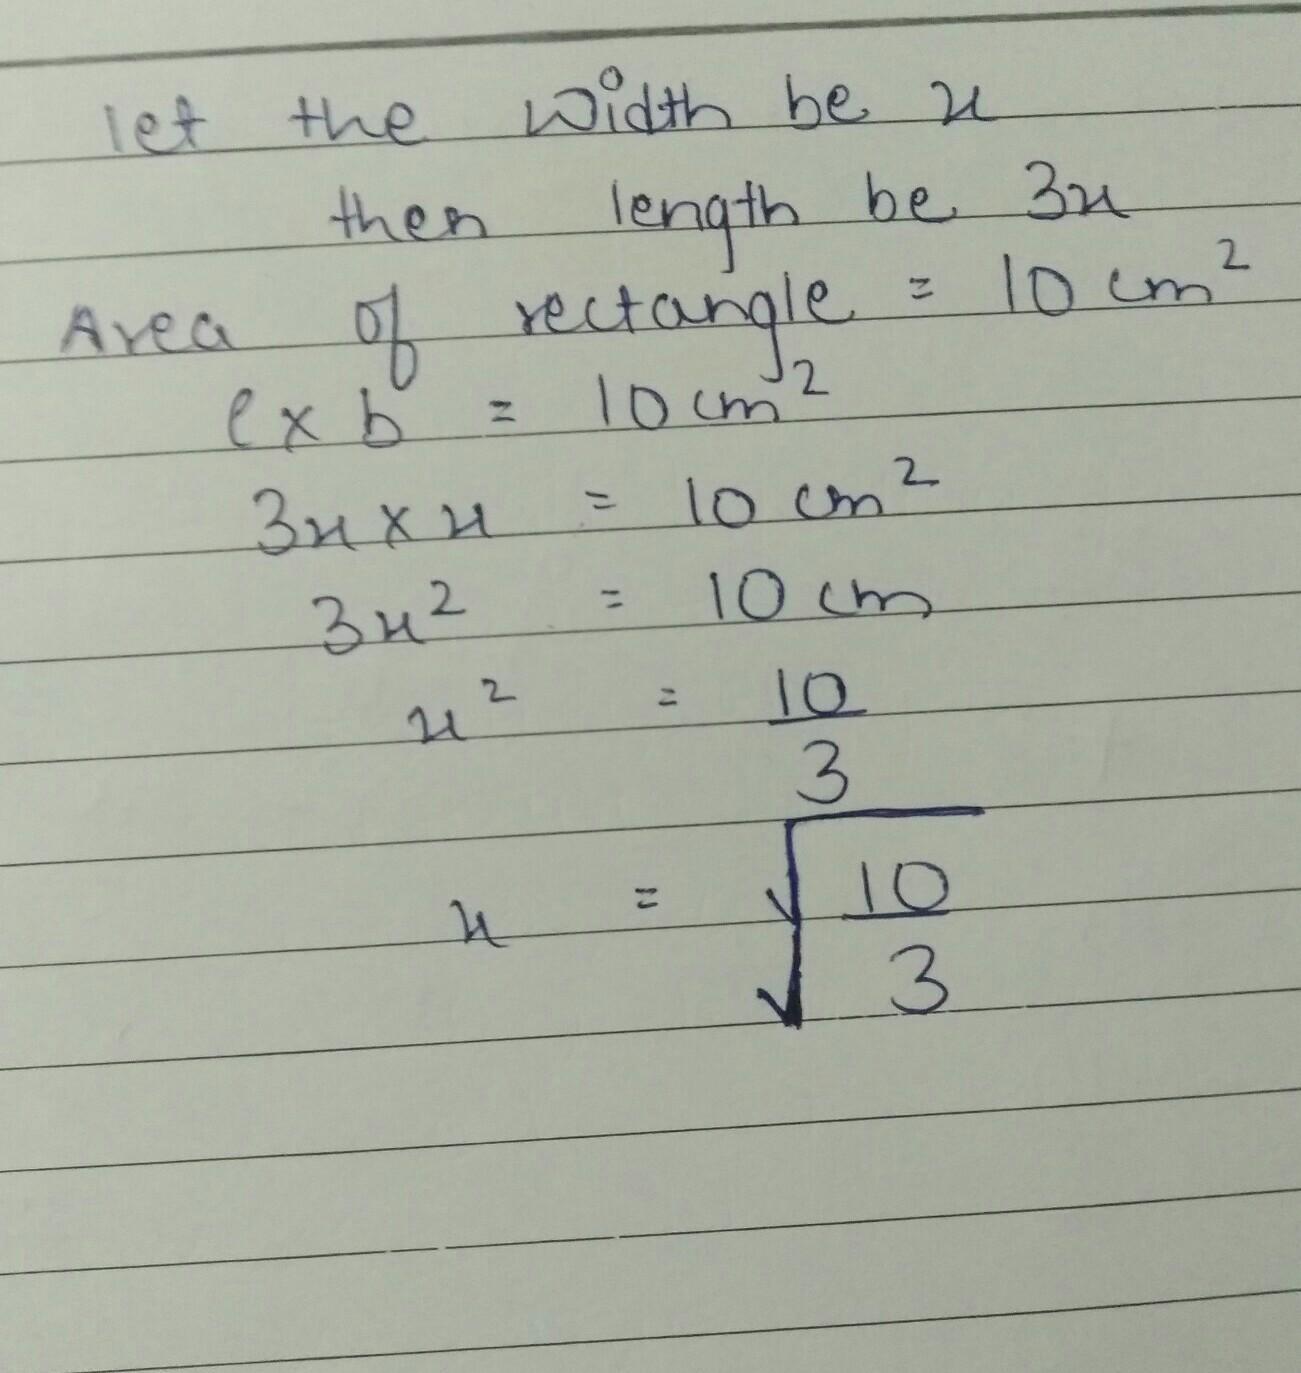 let the width be x
then length be 3x
Area of rectangle = 10 cm²
l × b = 10 cm²
3x × x = 10 cm²
3x² = 10 cm
x² = 10/3
x = √(10/3)